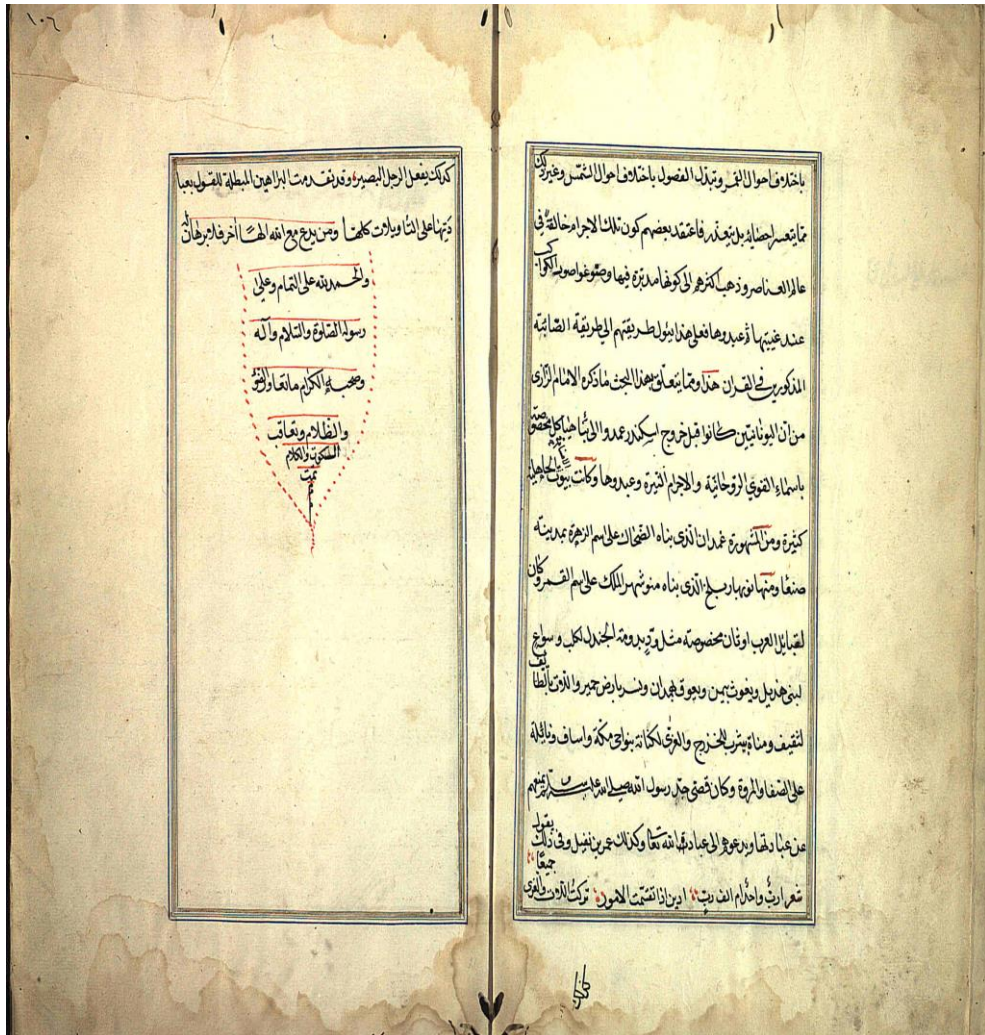 باختلاف احوال القمر وتبدل الفصول باختلاف احوال الشمس وغير ذلك
مما يتعسر احصاؤه بل يتعذر فاعتقد بعضهم كون تلك الاجرام خالقة في
عالم العناصر وذهب اكثرهم الى كونها مدبرة فيها وصوغوا صور الكواكب
عند غيبتها وعبدوها فعلى هذا يئول طريقتهم الى طريقة الصائبة
المذكورين في القران هذا ومما يتعلق بهذا البحث ما ذكره الامام الرازى
من ان اليونانيين كانوا قبل خروج اسكندر عمدوا الى هياكل مخصوصة
باسماء القوى الروحانية والاجرام النيرة وعبدوها وكانت بيوت الجاهلية
كثيرة ومن المشهورة غمدان الذى بناه الضحاك على اسم الزهرة بمدينة
صنعا ومنها نوبهار بلخ الذى بناه منوشهر الملك على اسم القمر وكان
لقبايل العرب اوثان مخصوصة مثل ود بدومة الجندل لكلب وسواع
لبنى هذيل ويغوث بيمن ويعوق لهمدان ونسر بارض حمير واللات بالطائف
لثقيف ومناة بيثرب للخزرج والعزى لكنانة بنواحى مكة واساف ونائلة
على الصفا والمروة وكان قصى جد رسول الله صلى الله عليه وسلم يمنعهم
عن عبادتها ويدعوهم الى عبادة الله تعا وكذلك عمر بن نفيل وفى ذلك يقول
شعر ارب واحد ام الف رب ادين اذا تقسمت الامور تركت اللات والعزى جميعا
كذلك
١٠٦
كذلك يفعل الرجل البصير وقد تقدمت البراهين المبطلة للقول بعبا
دتها على التاويلات كلها ومن يدع مع الله الها اخر فلا برهان له
والحمد لله على التمام وعلى
رسوله الصلوة والسلام وآله
وصحبه الكرام ما تعا
والظلام وتعاقب
السكوت والكلام
تمت